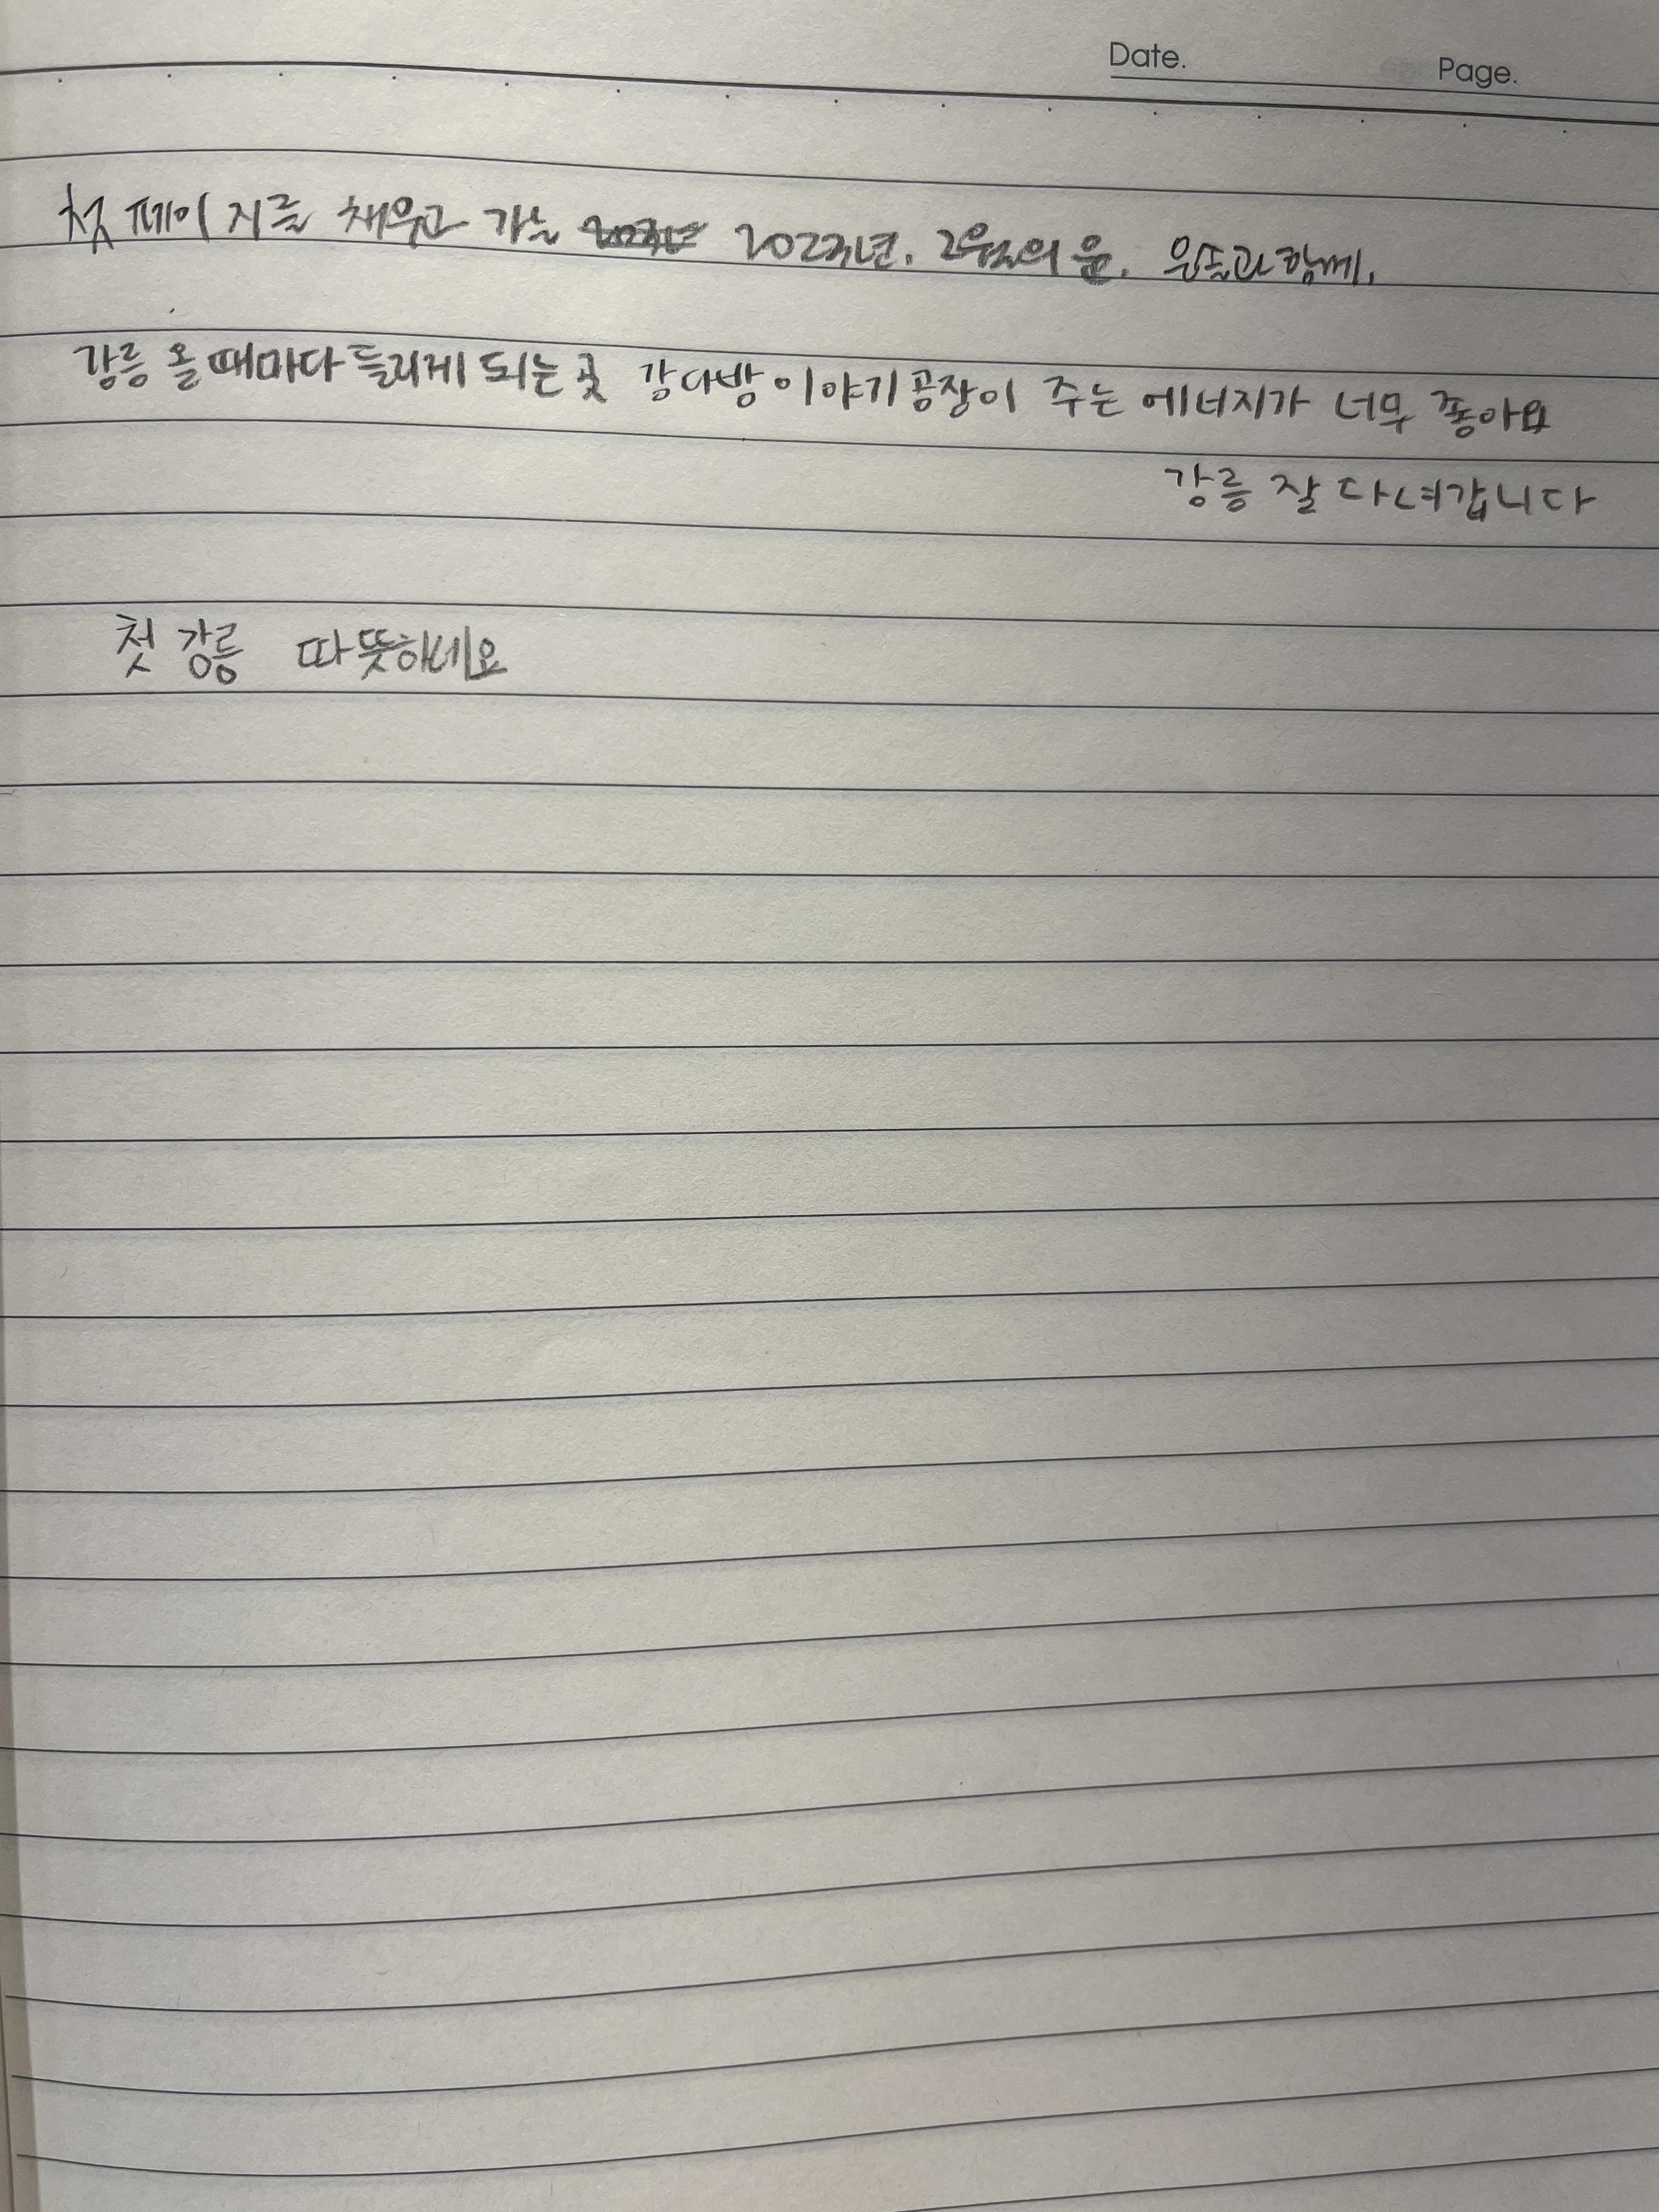 Date. Page.
첫 페이지를 채우고 가는 2023년. 2월의 운. 웃음과 함께.
강릉 올 때마다 들리게 되는 곳 강다방 이야기공장이 주는 에너지가 너무 좋아요
강릉 잘 다녀갑니다
첫 강릉 따뜻하네요